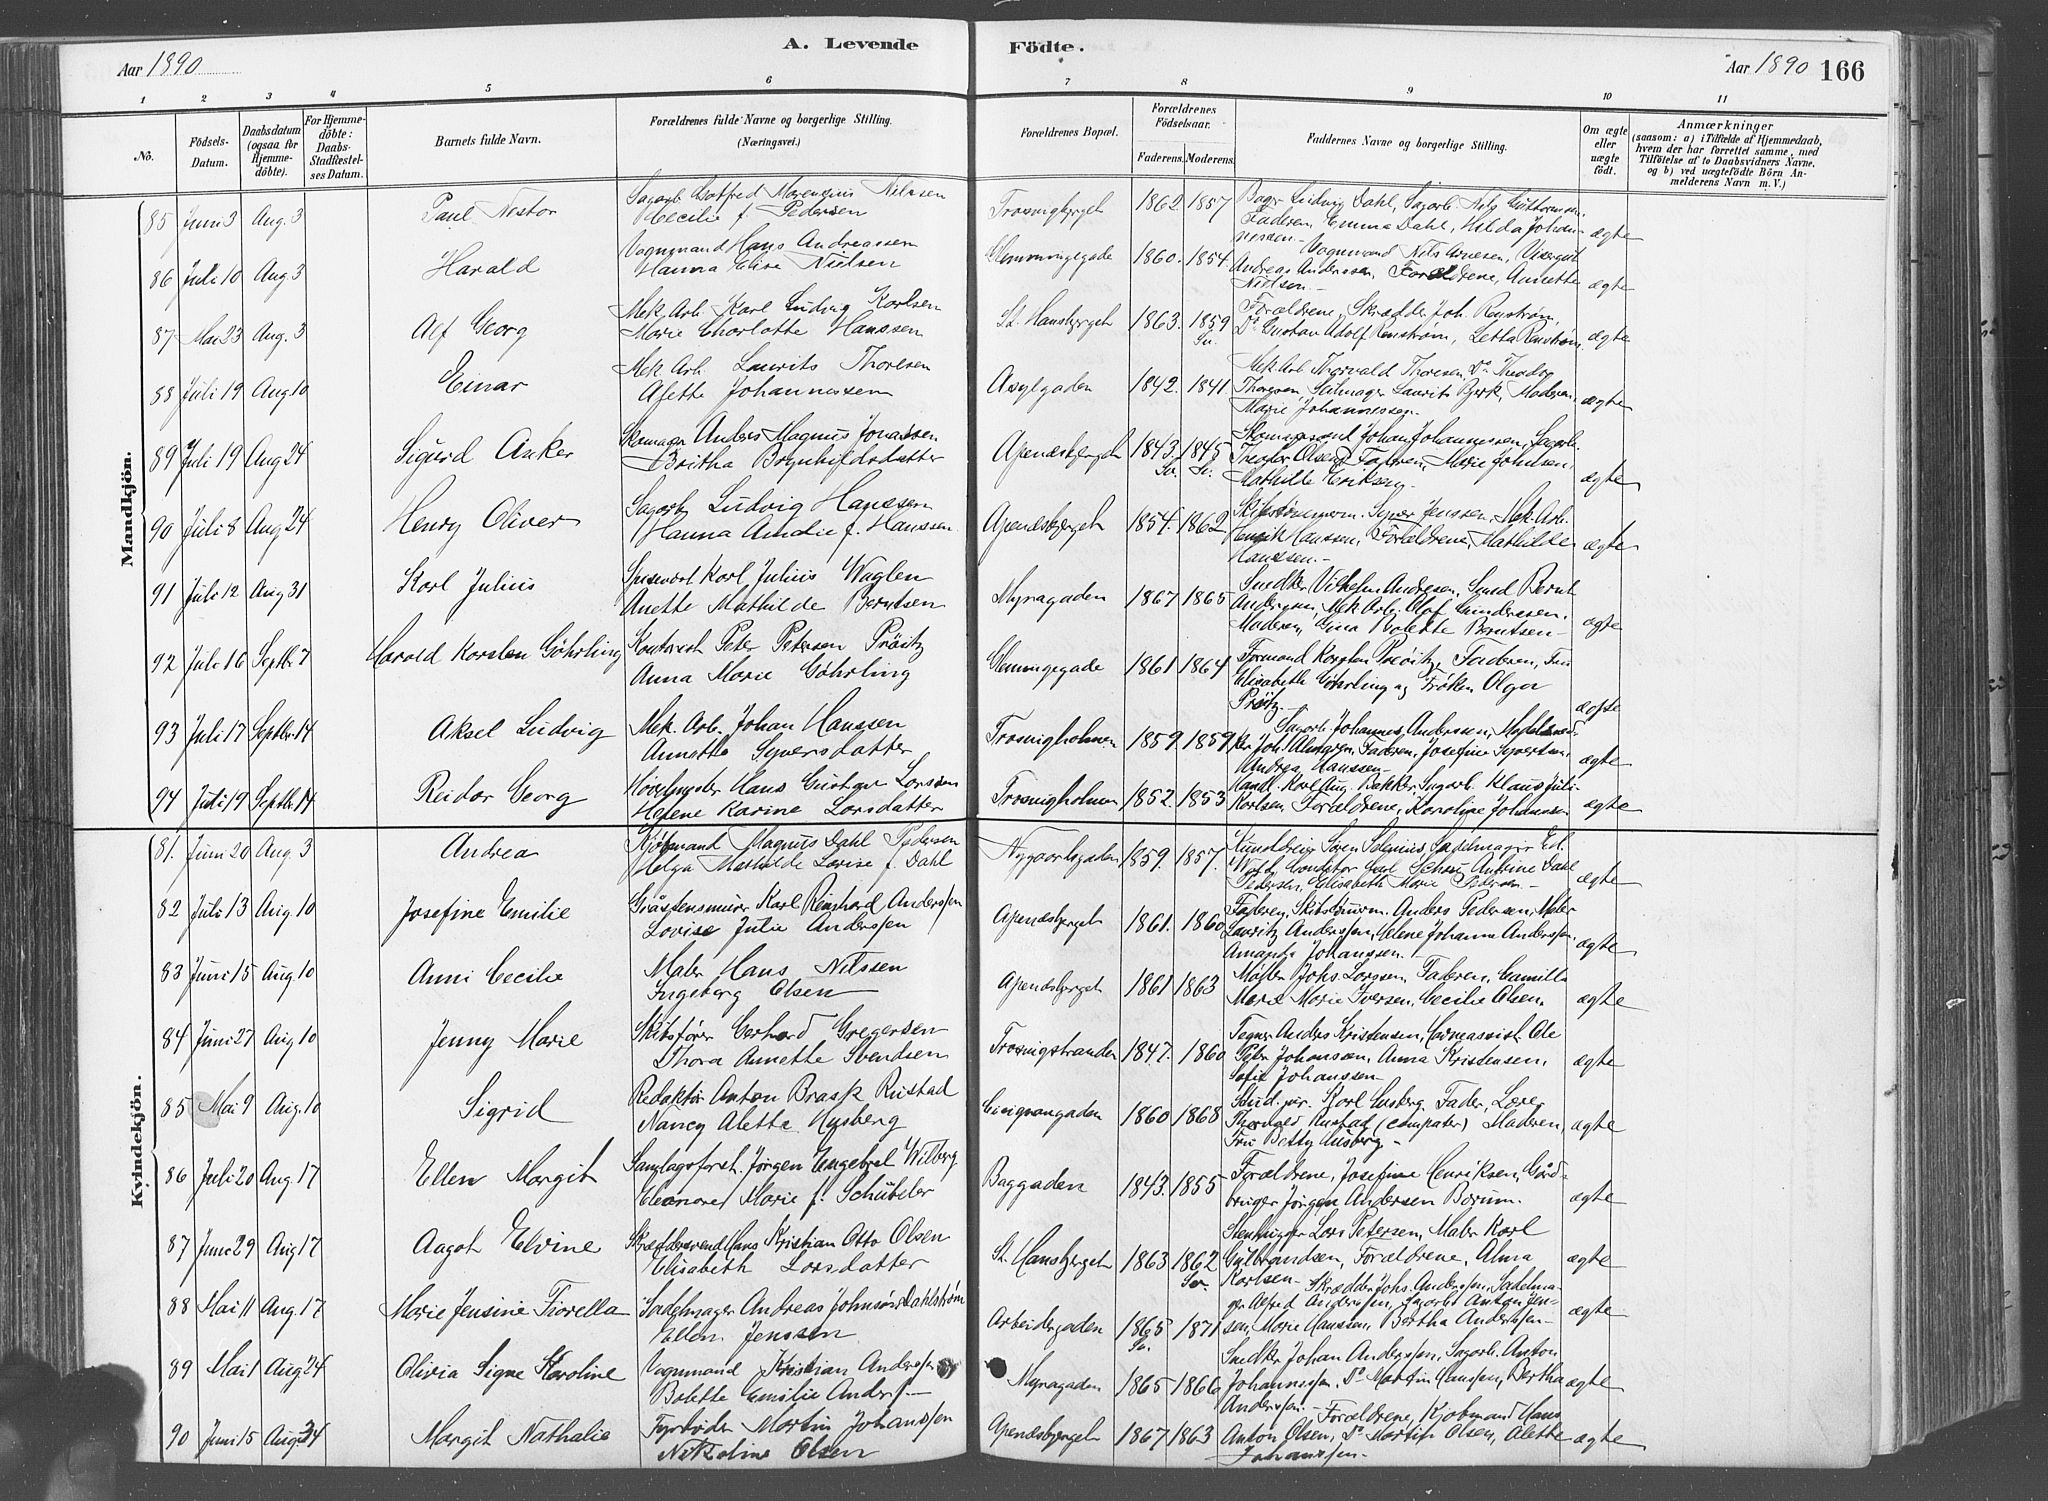 A. Levende Födte.
Aar 1890
Aar 1890 166
1 2 3 4 5 6 7 8 9 10 11
No.
Födsels-Datum.
Daabsdatum (ogsaa for Hjemmedöbte).
For Hjemmedöbte: Daabs-Stadfæstelses Datum.
Barnets fulde Navn.
Forældrenes fulde Navne og borgerlige Stilling.
(Næringsvei.)
Forældrenes Bopæl.
Forældrenes Födselsaar.
Faderens. Moderens.
Faddernes Navne og borgerlige Stilling.
Om ægte eller uægte født.
Anmærkninger
(saasom: a) i Tilfælde af Hjemmedaab, hvem der har forrettet samme, med Tilföielse af to Daabsvidners Navne, og b) ved uægtefödte Börn Anmelderens Navn m. V.)
Mandkjön.
85 Juni 3 Aug. 3 Paul Nestor
Sagarb. Gotfred Marensius Nilssen
Cecilie f. Pedersen
Trosvigbjerget 1862 1857
Bager Ludvig Dahl, Sagarb. Nils Guttormsen,
Faderen, Emma Dahl, Hilda Johannessen.- ægte
86 Juli 10 Aug 3 Harald
Vognmand Hans Andreassen
Hanna Elise Nielsen
Glemmengegade 1860. 1854
Vognmand Nils
Andreas Anderssen, Forældrene, Annette
Nielsen.- ægte
87 Mai 23 Aug. 3 Alf Georg
Mek. Arb. Karl Ludvig Karlsen
Marie Charlotte Hanssen
St. Hansbjerget 1863. 1859 Sv.
Forældrene, Skrædder Joh. Renström,
Do Gustav Adolf Renstrøm, Letta Renström ægte
88 Juli 19 Aug 10 Einar
Mek. Arb. Laurits Thoresen
Alette Johannessen
Asylgaden 1842. 1841
Mek Arb. Thorvald Thoresen, Do Theodor
Thoresen, Seilmager Laurits Bjerk, Moderen,
Marie Johannessen. ægte
89 Juli 19 Aug 24 Sigurd Anker
Skomager Anders Magnus Jonassen
Britha Brynhildsdatter
Apenæsbjerget 1843. Sv. 1845 Sv.
Skomagersvend Johan Johannessen, Sagarb.
Theodor Olsen, Faderen, Marie Johnsen,
Mathilde Eriksen ægte
90 Juli 8 Aug 24 Henry Oliver
Sagarb. Ludvig Hanssen
Hanna Amalie f. Hanssen
Apenæsbjerget 1854. 1862
Skibstømmerm. Syver Jenssen, Mek. Arb.
Henrik Hanssen, Forældrene, Mathilde
Hanssen.- ægte
91 Juli 12 Aug 31 Karl Julius
Spisevært Karl Julius Waglen
Anette Mathilde Berntsen
Myragaden 1867 1865
Snedker Vilhelm Andresen, Smed Bernt
Andersen, Mek. Arb. Olaf Gunderssen,
Moderen, Gina Bolette Berntsen- ægte
92 Juli 16 Septbr 7 Harald Karsten Göhrling
Kontorist Peter Petersen Pröitz
Anna Marie Göhrling
Glemmingegade 1861 1864
Formand Karsten Pröitz, Faderen, Fru
Elisabeth Göhrling og Frøken Olga
Pröitz ægte
93 Juli 17 Septbr 14 Aksel Ludvig
Mek. Arb. Johan Hanssen
Annette Syversdatter
Trosvigholmen 1859. 1859
Sagarb. Johannes Anderssen,
Joh. Almgren, Faderen, Josefine Syversen,
Andrea Hanssen- ægte
94 Juli 19 Septbr. 14 Reidar Georg
Høvelmester Hans Gustav Larssen
Helene Karine Larsdatter
Trosvigholmen 1852. 1853
Handl. Karl Aug. Bekker, Sagarb. Klaus Juli-
Karlsen, Forældrene, Karoline Johansen ægte
Kvindekjön.
81. Juni 20 Aug. 3 Andrea
Kjöbmand Magnus Dahl Pedersen
Helga Mathilde Lovise f. Dahl
Nygaardsgaden 1859. 1857.
Kunstdreier Søren Selenius, Sadelmager Ed.
Wold, Konditor Schou, Antrine Dahl
Pedersen, Elisabeth Marie Pedersen.- ægte
82 Juli 13 Aug. 10 Josefine Emilie
Graastensmurer Karl Reinhard Anderssen
Lovise Julie Anderssen
Apenæsbjerget 1861. 1860
Faderen, Skibstømm. Anders Pedersen, Maler
Lauritz Anderssen, Helene Johanne Anderssen,
Amanda Johanssen.- ægte
83 Juni 15 Aug. 10 Anni Cecilie
Maler Hans Nilssen
Ingeborg Olsen
Apenæsbjerget 1861 1863
Møller Johs Larsen, Faderen, Camilla
Marie Marie Iversen, Cecilie Olsen. ægte
84 Juni 27 Aug. 10 Jenny Marie
Skibsfører Gerhard Gregersen
Thora Annette Svendsen
Trosvigstranden 1847. 1860
Tegner Anders Kristensen, Ole
Peter Johansen, Anna Kristensen,
Sofie Johanssen- ægte
85 Mai 9 Aug. 10 Sigrid
Redaktör Anton Brask Rustad
Nancy Aletta Nysberg
Cicignongaden 1860 1868
Stud. jur. Karl Fader, Lærer
Thorvald Rustad (computer) Moderen,
Fru Betty ægte
86 Juli 20 Aug. 17 Ellen Margit
Samlagsforst. Jörgen Engebret Wilberg
Eleonore Marie f. Schübeler
Baggaden 1843. 1855
Forældrene, Josefine Henriksen, Gård-
bruger Jörgen Andersen Borum. ægte
87 Juni 29 Aug 17 Aagot Elvine
Skræddersvend Hans Kristian Otto Olsen
Elisabeth Larsdatter
St. Hansbjerget 1863 1862 Sv.
Stenhugger Lars Petersen, Maler Karl
Gulbrandsen, Forældrene, Alma
Karlsen- ægte
88 Mai 11 Aug. 17 Marie Jensine Fiorella
Sadelmager Andreas Johnson Dahlström
Jenssen
Arbeidergaden 1865 Sv. 1871
Skrædder Johs. Anderssen, Sadelma-
ger Alfred Anderssen, Sagarb. Anton Jen-
sen, Marie Hanssen, Bertha Anderssen- ægte
89 Mai 1 Aug 24 Olivia Signe Karoline
Vognmand Kristian Anderssen
Bolette Emilie Anders.-
Myragaden 1865 1866
Snedker Johan Anderssen, Sagarb. Anton
Johannessen, Do Martin Hanssen, Bertha
Anderssen.- ægte
90 Juni 15 Aug. 24 Margit Nathalie
Fyrbøder Martin Johanssen
Nikoline Olsen
Apenæsbjerget 1867 1863
Forældrene, Kjöbmand Hans
Anton Olsen, Do Martin Olsen, Alette
Johanssen- ægte